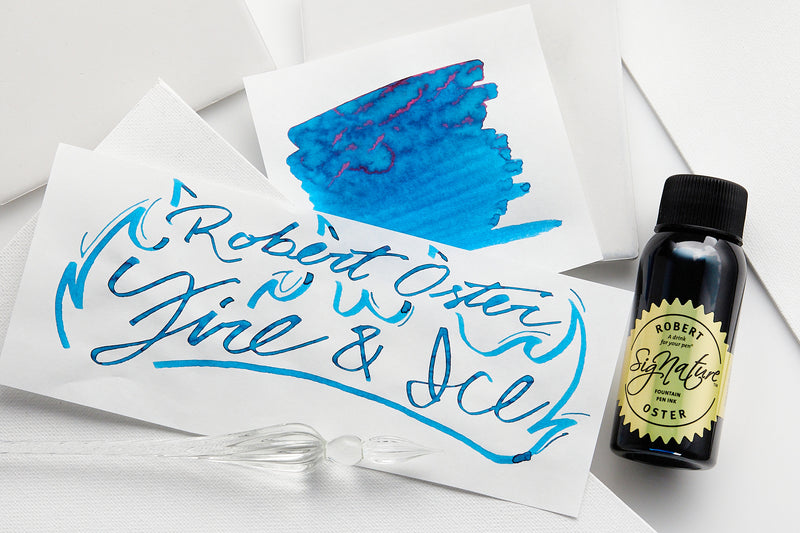 Robert Oster
Fire & Ice
ROBERT
A drink
for your pen®
SigNature™
FOUNTAIN
PEN INK
OSTER